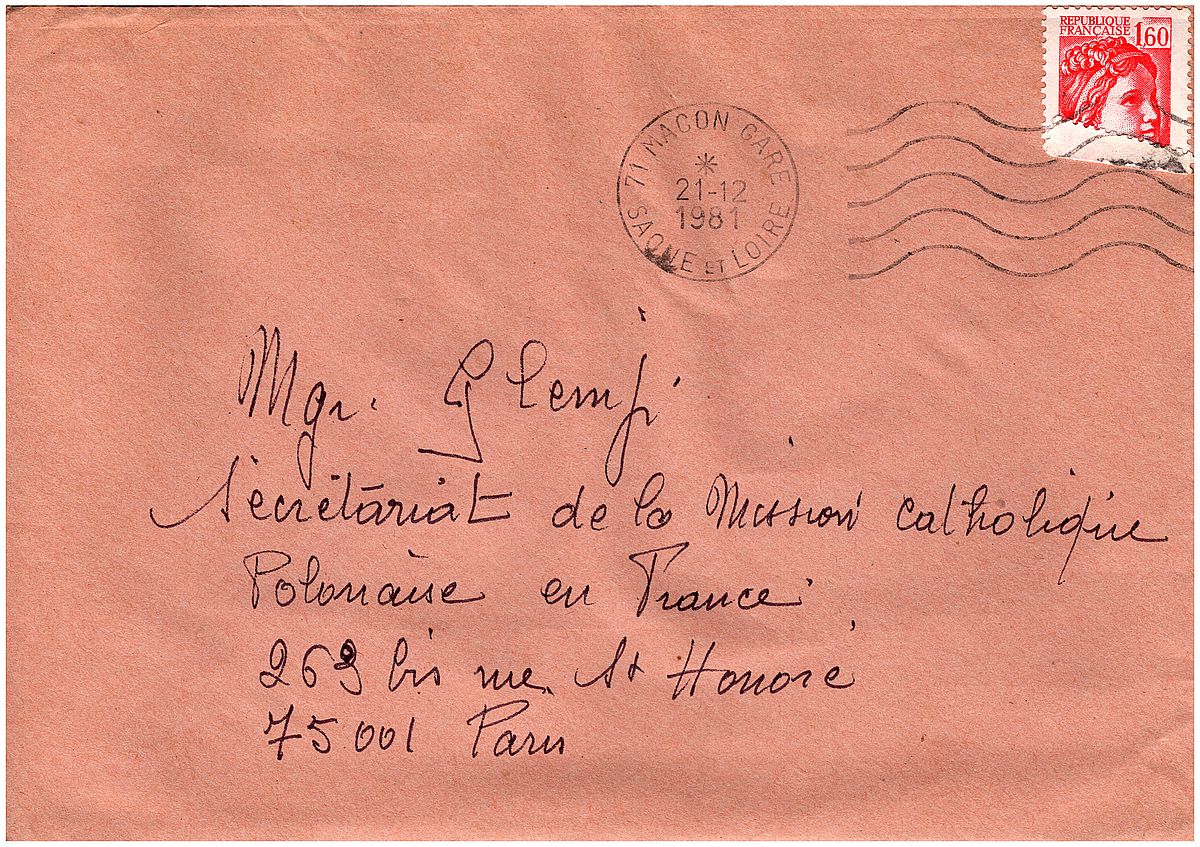 REPUBLIQUE
FRANÇAISE 1,60
71 MACON GARE
21-12
1981
SAONE ET LOIRE
Mgr. Glemp
Sécrétariat de la Mission Catholique
Polonaise en France
263 bis rue St Honoré
75001 Paris